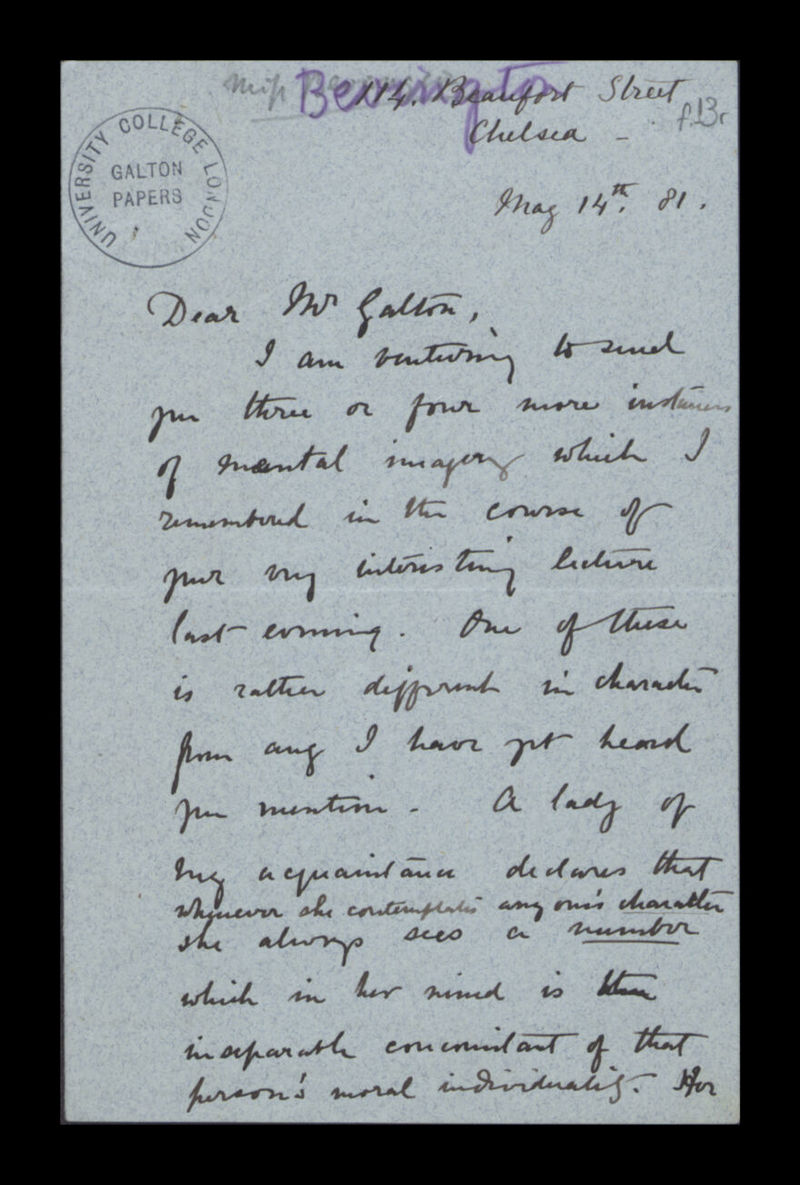 Miss Bevington
114. Beaufort Street
f.13r
Chelsea -
UNIVERSITY COLLEGE LONDON
GALTON
PAPERS
May 14th. 81.
Dear Mr Galton,
I am venturing to send
you three or four more instances
of mental imagery which I
remembered in the course of
your very interesting lecture
last evening. One of these
is rather different in character
from any I have yet heard
you mention - A lady of
my acquaintance declares that
whenever she contemplates any one's character
she always sees a number
which in her mind is the
inseparable concomitant of that
person's moral individuality. Her